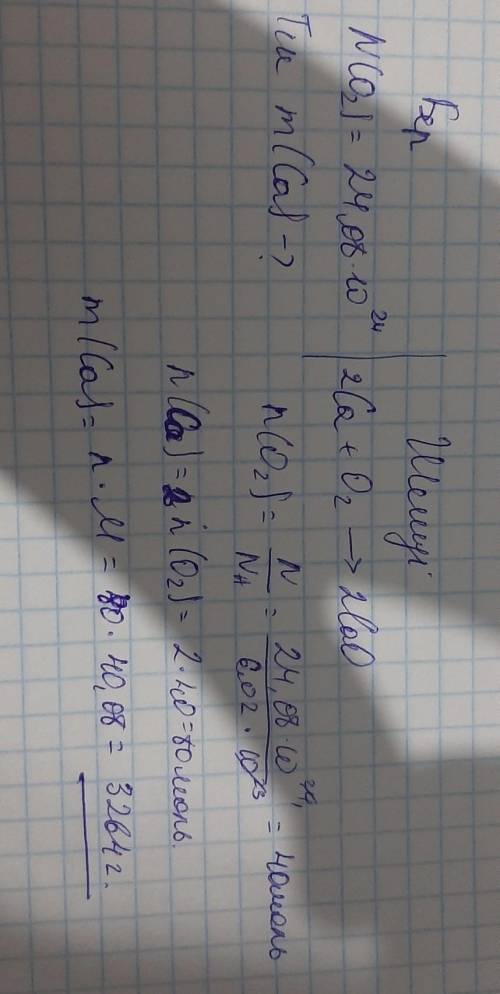 Бер
Шешуі
N(O₂) = 24,08·10²⁴ | 2Ca + O₂ → 2CaO
Т/к m(Ca) - ?
n(O₂) = N/Nₐ = 24,08·10²⁴/6,02·10²³ = 40моль
n(Ca) = 2n(O₂) = 2·40 = 80моль.
m(Ca) = n·M = 80·40,08 = 3264г.